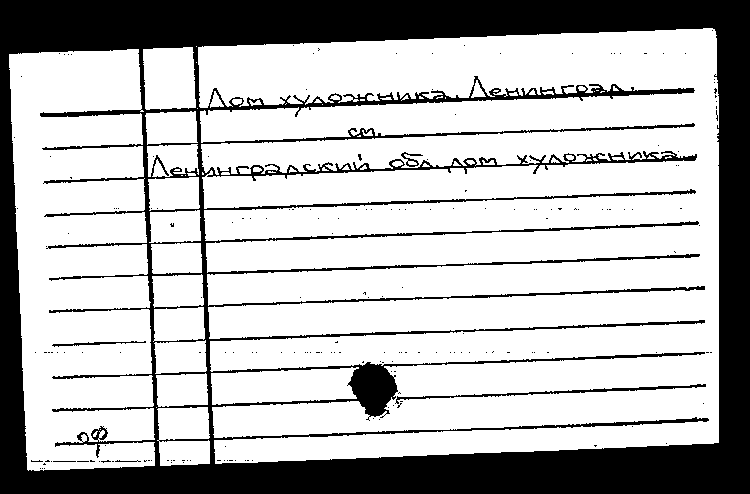 Дом художника. Ленинград.
см.
Ленинградский обл. дом художника.
оф